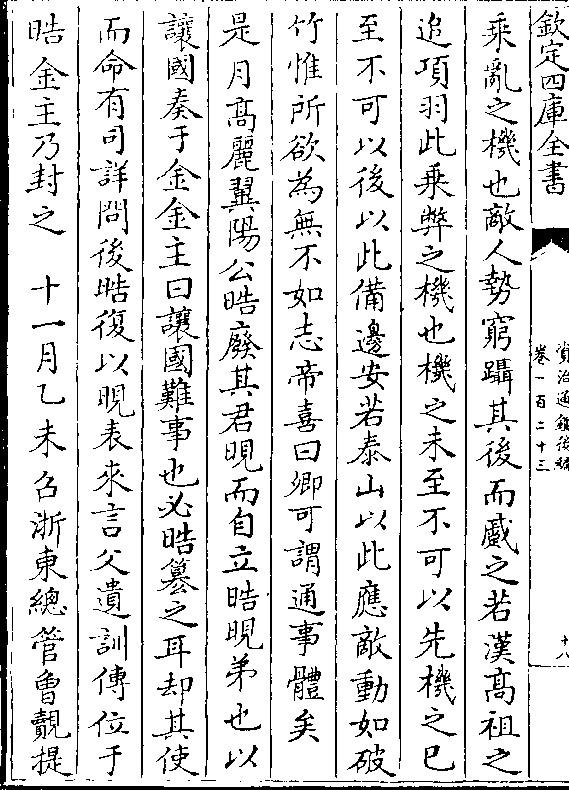 欽定四庫全書
資治通鑑後編
卷一百二十三
十八
乘亂之機也敵人勢窮躡其後而蹙之若漢高祖之
追項羽此乗弊之機也機之未至不可以先機之已
至不可以後以此備邊安若泰山以此應敵動如破
竹惟所欲為無不如志帝喜曰卿可謂通事體矣
是月髙麗翼陽公晧廢其君晛而自立晧晛弟也以
讓國奏于金金主曰讓國難事也必晧簒之耳却其使
而命有司詳問後晧復以晛表來言父遺訓傳位于
晧金主乃封之　十一月乙未召浙東總管曾覿提